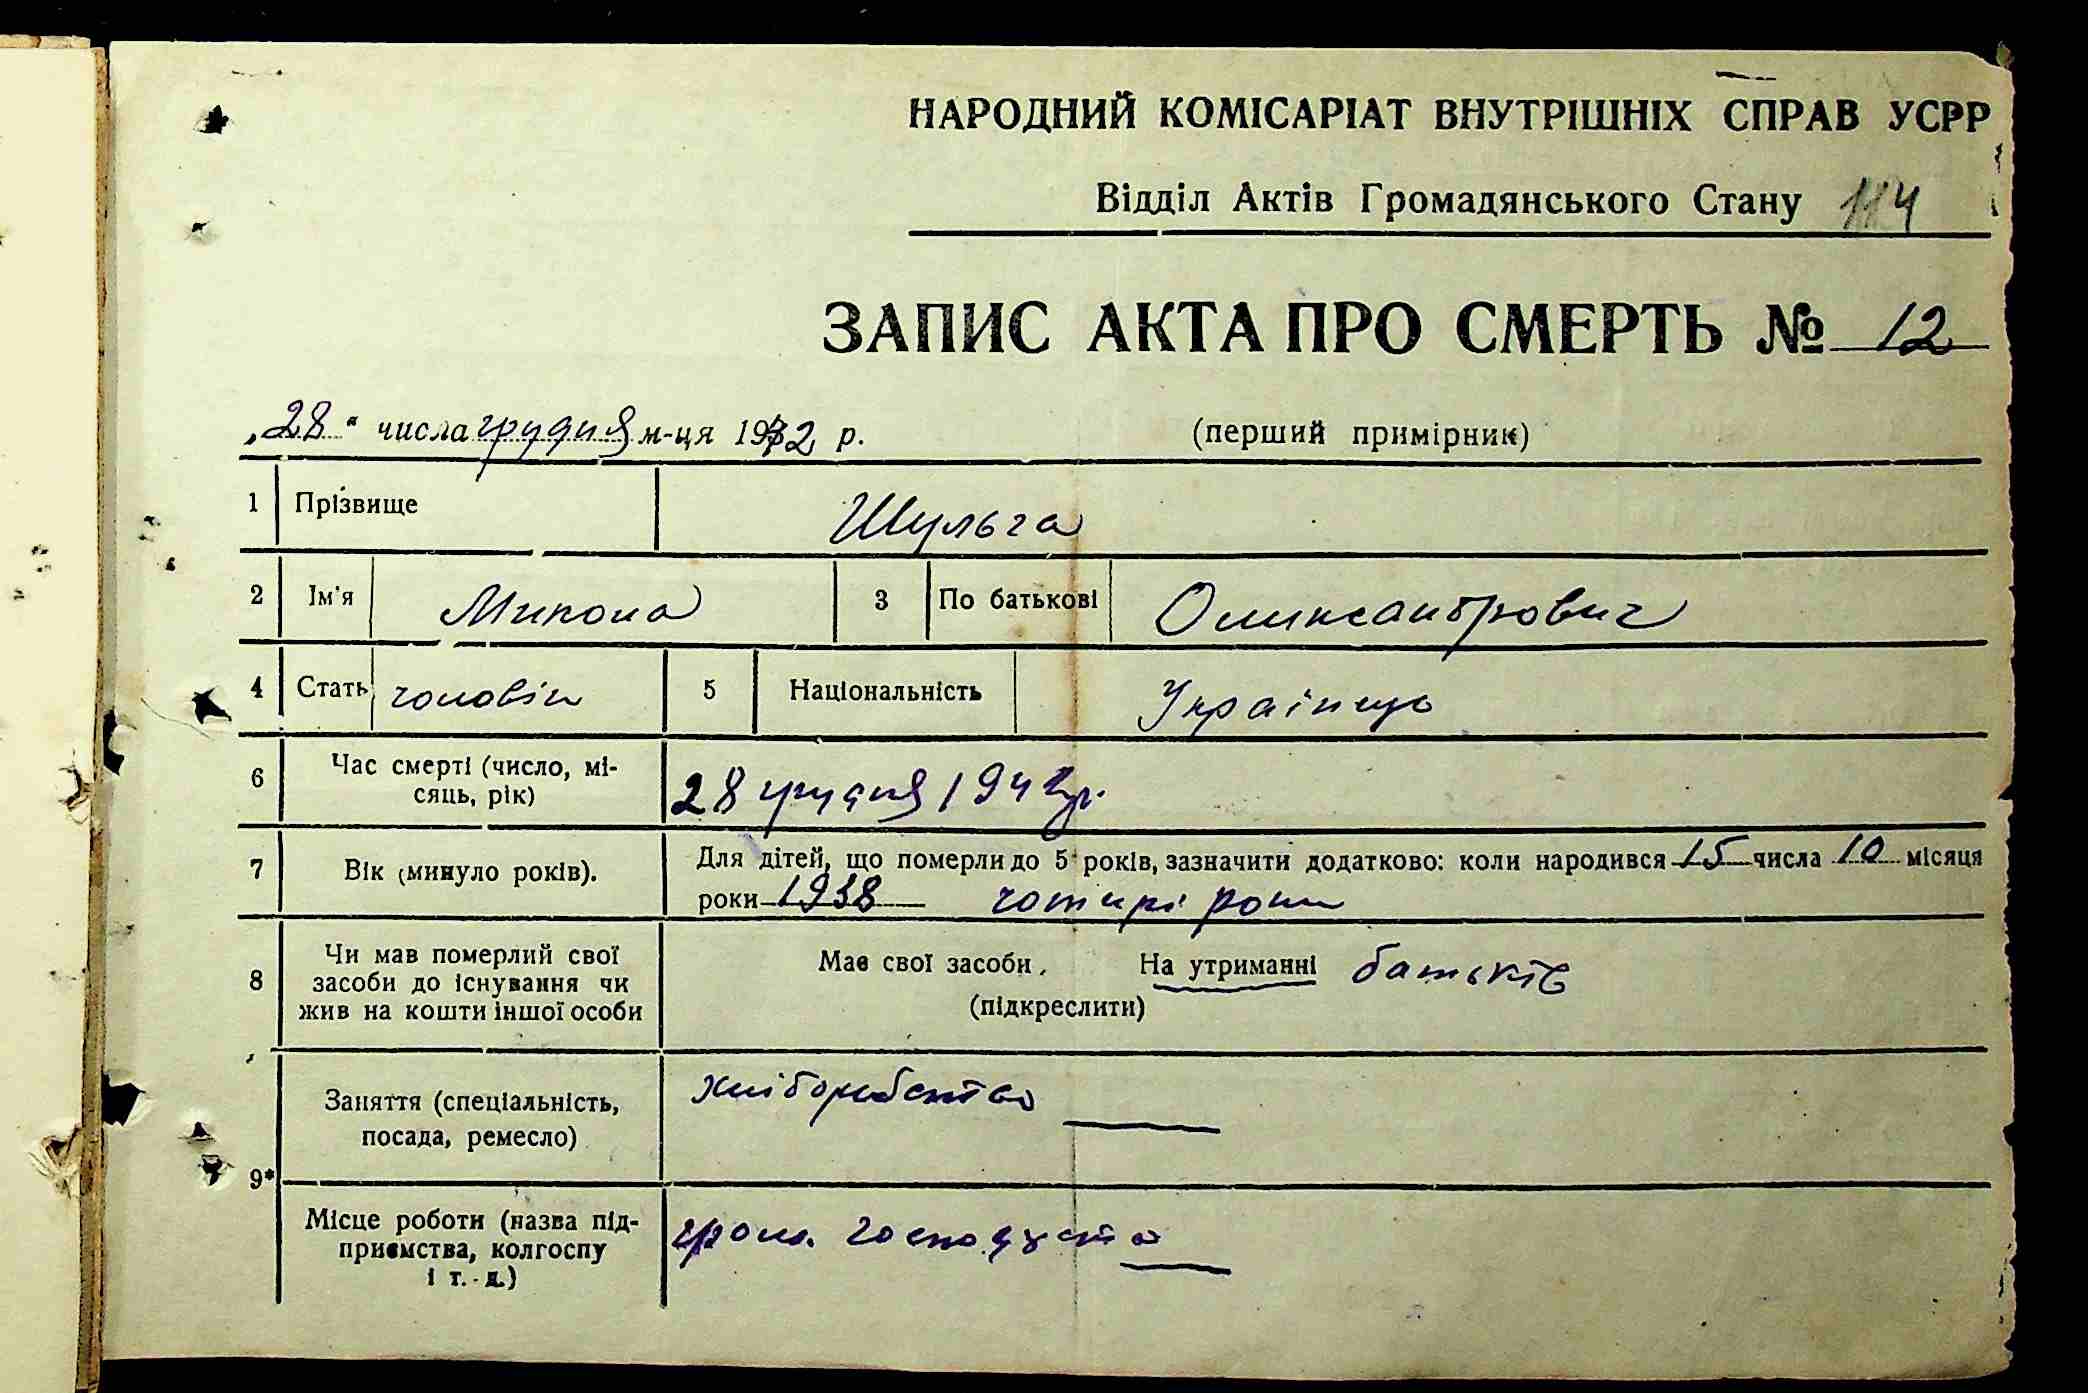 НАРОДНИЙ КОМІСАРІАТ ВНУТРІШНІХ СПРАВ УСРР
Відділ Актів Громадянського Стану 114
ЗАПИС АКТА ПРО СМЕРТЬ № 12
„28“ числа грудня м-ця 1942 р. (перший примірник)
1 Прізвище Шульга
2 Ім'я Микола 3 По батькові Олександрович
4 Стать чоловік 5 Національність Українець
6 Час смерті (число, мі-
сяць, рік) 28 грудня 1942 р.
7 Вік (минуло років). Для дітей, що померли до 5 років, зазначити додатково: коли народився 15 числа 10 місяця
роки 1938 чотирі роки
8 Чи мав померлий свої
засоби до існування чи
жив на кошти іншої особи
Має свої засоби, На утриманні батьків
(підкреслити)
9* Заняття (спеціальність,
посада, ремесло)
хліборобство
Місце роботи (назва під-
приємства, колгоспу
і т. д.)
гром. господ.